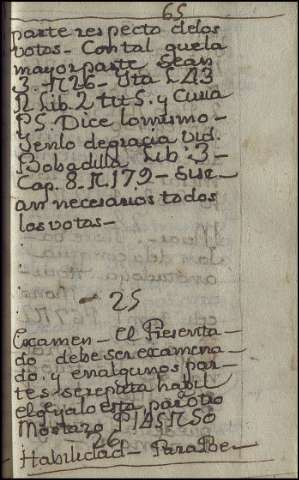 65
parte respecto de los
votos - Con tal que la
mayor parte sean
3. N 26 - Uta L 43
N Lib. 2 tit 5. y Curia
P S. Dice lo mismo -
Y en lo de gracia Vid.
Bobadilla Lib. 3 -
Cap. 8. N. 179 - Sise-
an necesarios todos
los votos -
- 25
Examen - El Presenta-
do debe ser examina-
do. y en algunos par-
tes se reputa habil
el que ya lo esta por otro
Mostazo P 145 N 50
26
Habilidad - Para Poe-